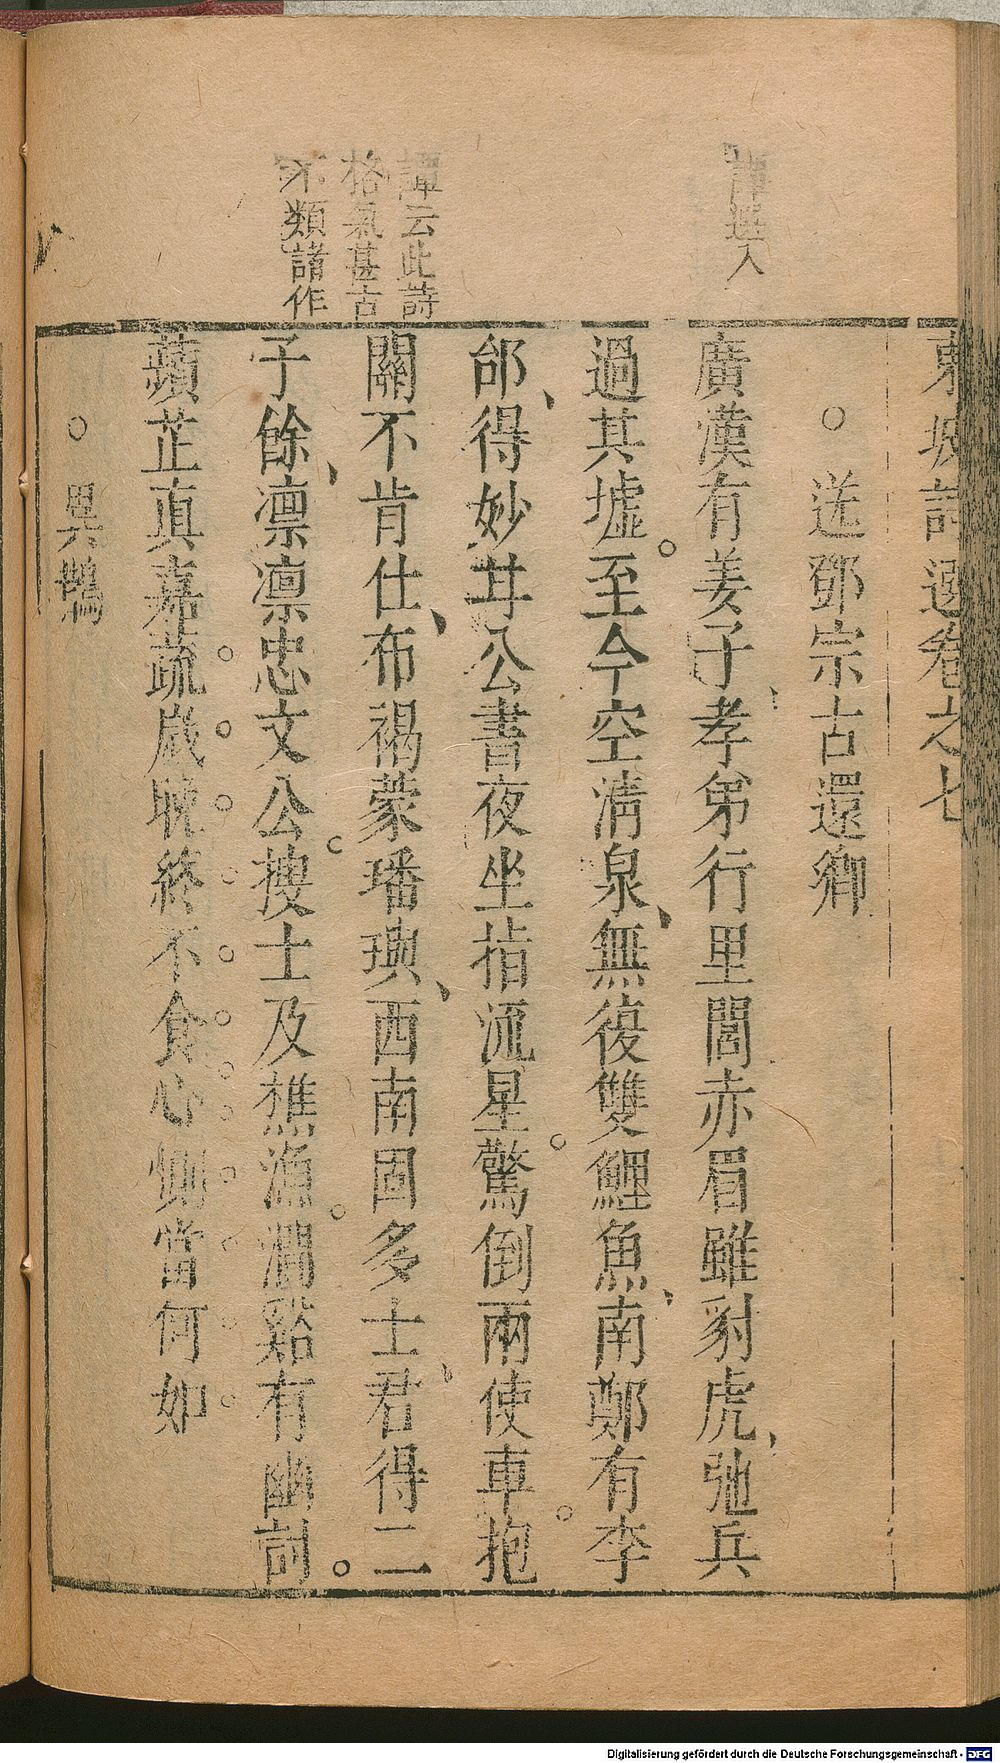 東坡詩選卷之七
送鄧宗古還鄉
譚選入
廣漢有姜子孝弟行里閭赤眉雖豺虎弛兵
過其墟至今空清泉無復雙鯉魚南鄭有李
郃得妙甘公書夜坐指流星驚倒兩使車抱
關不肯仕布褐蒙璠璵西南固多士君得二
譚云此詩
格氣甚古
不類諸作
子餘凛凛忠文公搜士及樵漁澗谿有幽討
蘋芷真嘉蔬歲晚終不食心惻當何如
異鵲
Digitalisierung gefördert durch die Deutsche Forschungsgemeinschaft - DFG